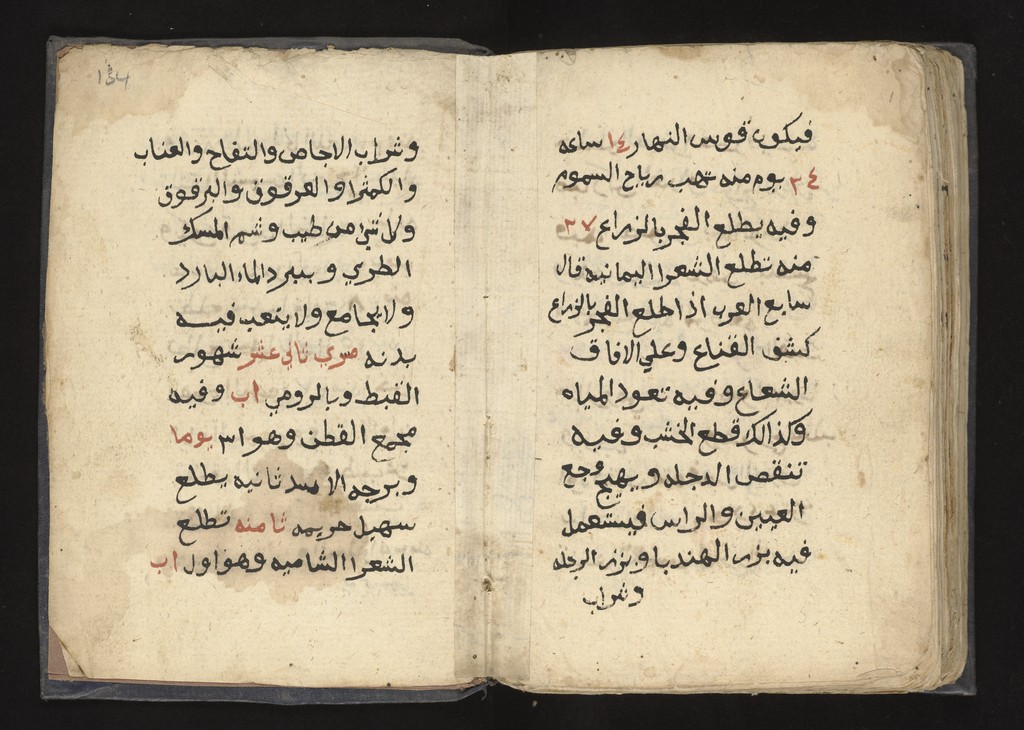 فيكون قوس النهار ١٤ ساعه
٢٤ يوم منه تهب رياح السموم
وفيه يطلع الفجر بالزراع ٢٧
منه تطلع الشعرا اليمانيه قال
ساجع العرب اذا طلع الفجر بالزراع
كشف القناع وعلي الافاق
الشعاع وفيه تعود المياه
وكذالك قطع الخشب وفيه
تنقص الدجله ويهيج وجع
العينين والراس فيستعمل
فيه بزر الهندبا وبزر الرجله
وشراب
134
وشراب الاجاص والتفاح والعناب
والكمثرا والعرقوق والبرقوق
ولا شي من طيب وشم المسك
الطري ويبرد الماء البارد
ولا يجامع ولا يتعب فيه
بدنه مسري ثاني عشر شهور
القبط وبالرومي اب وفيه
مجمع القطن وهو ٣١ يوما
وبرجه الاسد ثانيه يطلع
سهيل حريمه ثامنه تطلع
الشعرا الشاميه وهو اول اب